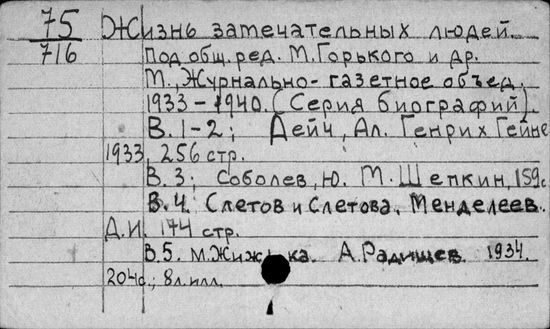 75 Жизнь замечательных людей.
716 Под общ. ред. М. Горького и др.
М., Журнально-газетное объед.
1933-1940. (Серия биографий).
В. 1-2; Дейч, Ал. Генрих Гейне
1933, 256 стр.
В. 3; Соболев, Ю. М. Щепкин, 159с
В. 4. Слетов и Слетова. Менделеев.
Д. И. 174 стр.
В. 5. М. Жижка. А. Радищев. 1934.
204с.; 8л. илл.